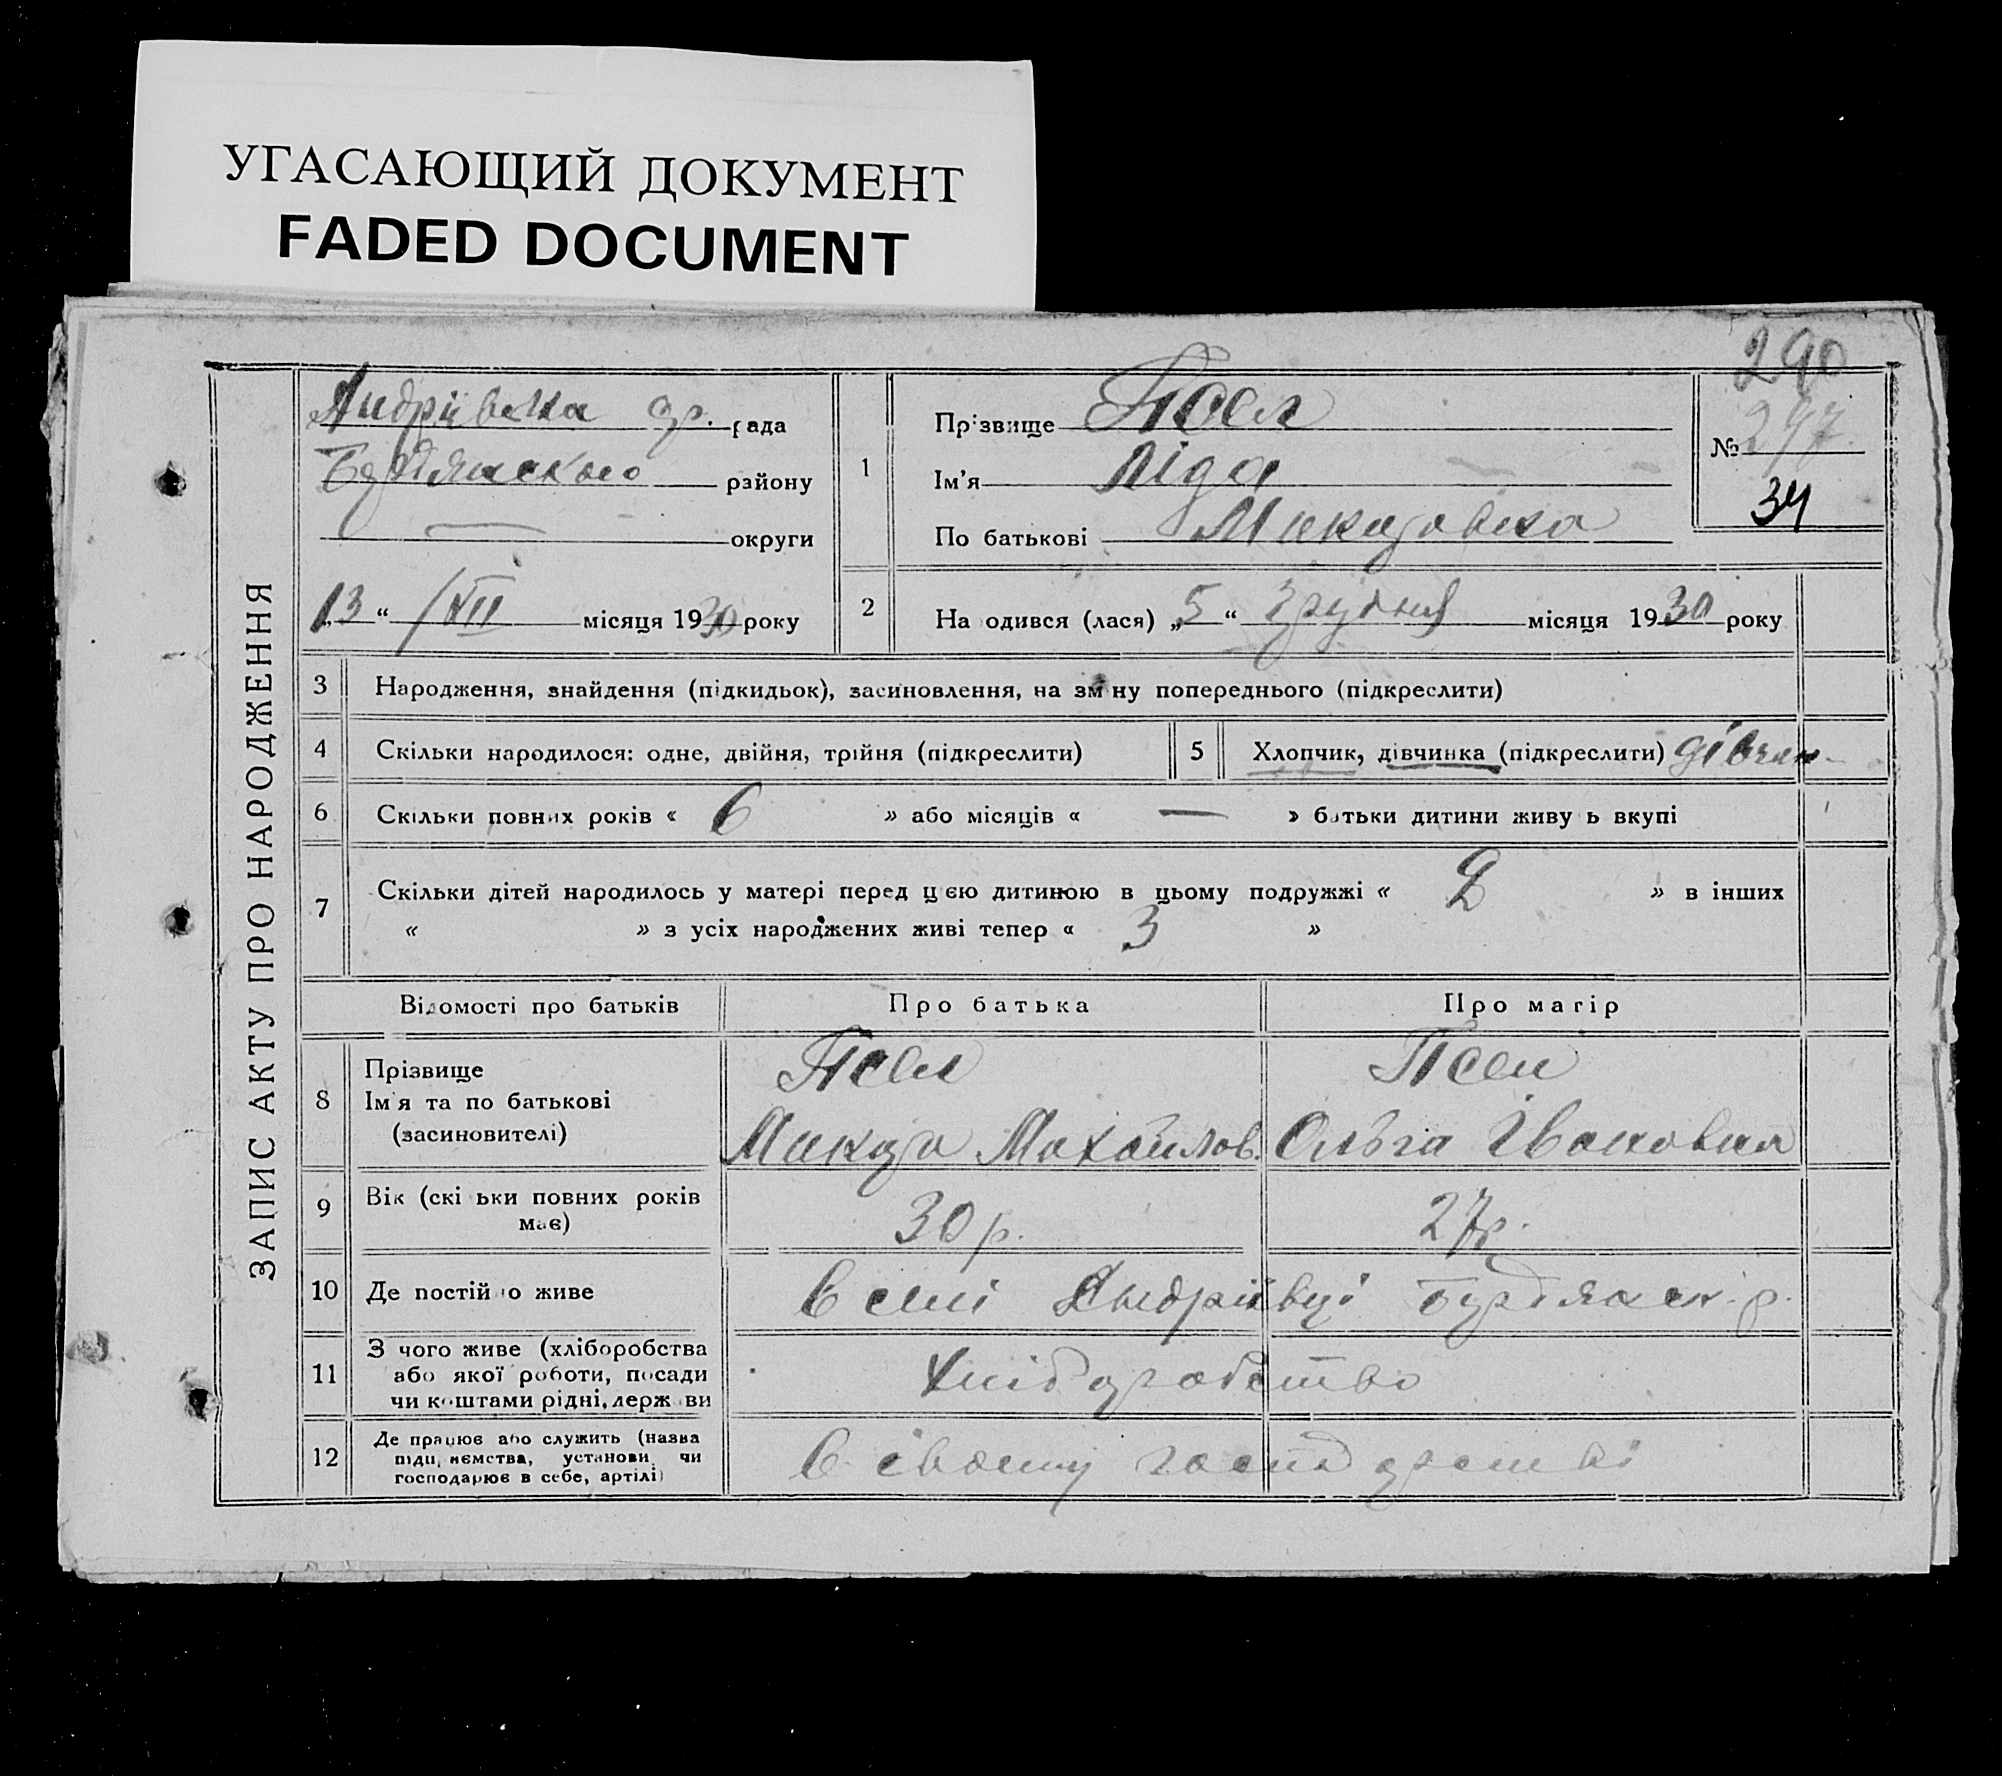 УГАСАЮЩИЙ ДОКУМЕНТ
FADED DOCUMENT
290
ЗАПИС АКТУ ПРО НАРОДЖЕННЯ
Андрівска рада
району
округи
„13“ /XII місяця 1930 року
1
Прізвище Псел
Ім'я Ліда
По батькові
№ 297
34
2 На одився (лася) „5“ Грудня місяця 1930 року
3 Народження, знайдення (підкидьок), засиновлення, на зм ну попереднього (підкреслити)
4 Скільки народилося: одне, двійня, трійня (підкреслити) 5 Хлопчик, дівчинка (підкреслити) дівчин-
6 Скільки повних років « 6 » або місяців « — » батьки дитини живу ь вкупі
7 Скільки дітей народилось у матері перед цією дитиною в цьому подружжі « 2 » в інших
« » з усіх народжених живі тепер « 3 »
Відомості про батьків Про батька Про матір
8 Прізвище Псел Псел
Ім'я та по батькові
(засиновителі) Михайлов. Ольга Івановна
9 Вік (скі ьки повних років має) 30 р. 27 р.
10 Де постій о живе в селі Андріївці
11 З чого живе (хліборобства
або якої роботи, посади
чи коштами рідні, держ ви Хліборобство
12 Де працює або служить (назва
підп иємства, установи чи
господарює в себе, артілі) В своему